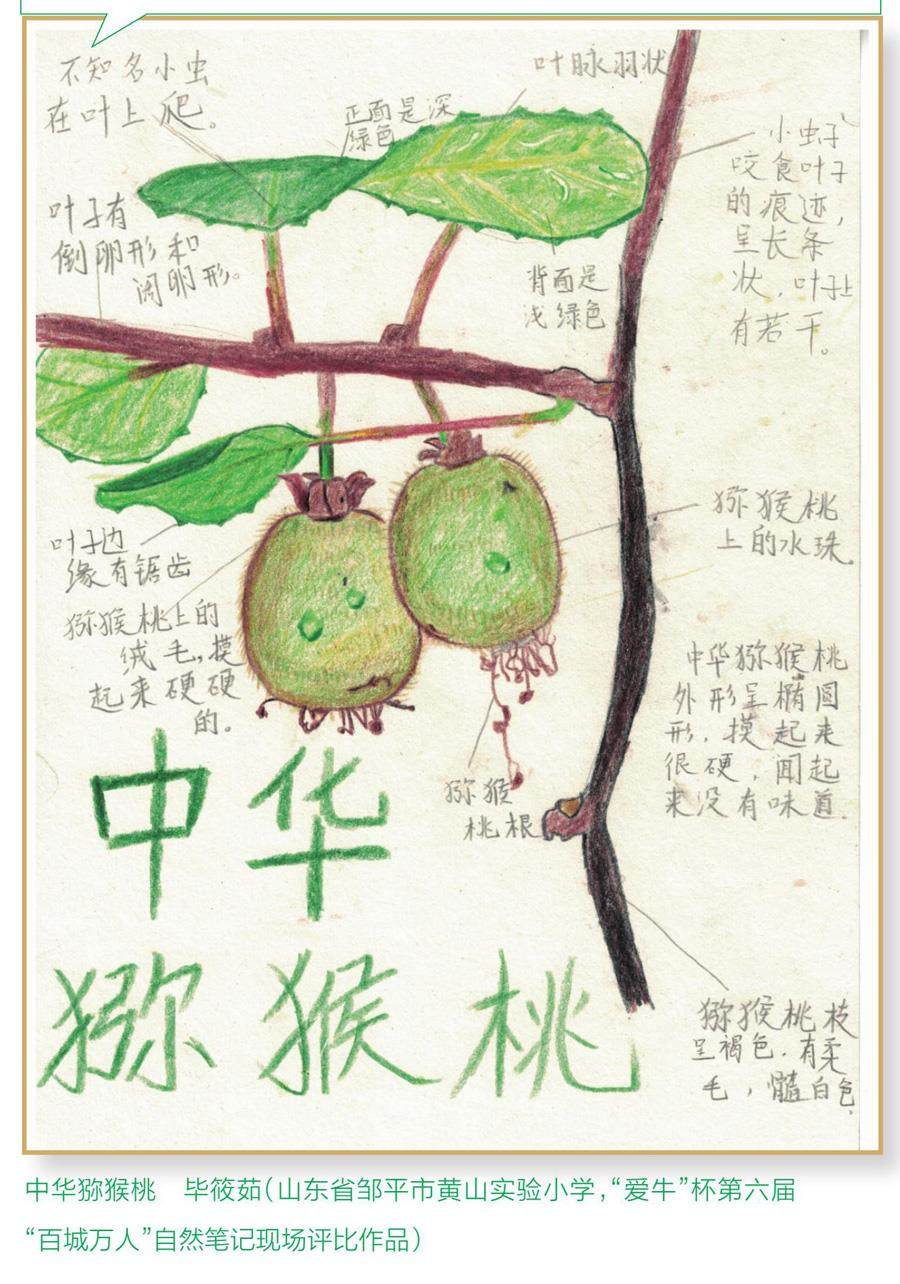 不知名小虫
在叶上爬。
叶脉羽状
正面是深
绿色
小虫子
咬食叶子
的痕迹，
呈长条
状，叶子上
有若干。
叶子有
倒卵形和
阔卵形。
背面是
浅绿色
猕猴桃
上的水珠
叶子边
缘有锯齿
猕猴桃上的
绒毛，摸
起来硬硬
的。
中华猕猴桃
外形呈椭圆
形，摸起来
很硬，闻起
来没有味道.
猕猴
桃根
中华
猕猴桃
猕猴桃枝
呈褐色，有柔
毛，髓白色.
中华猕猴桃 毕筱茹（山东省邹平市黄山实验小学，“爱牛”杯第六届
“百城万人”自然笔记现场评比作品）